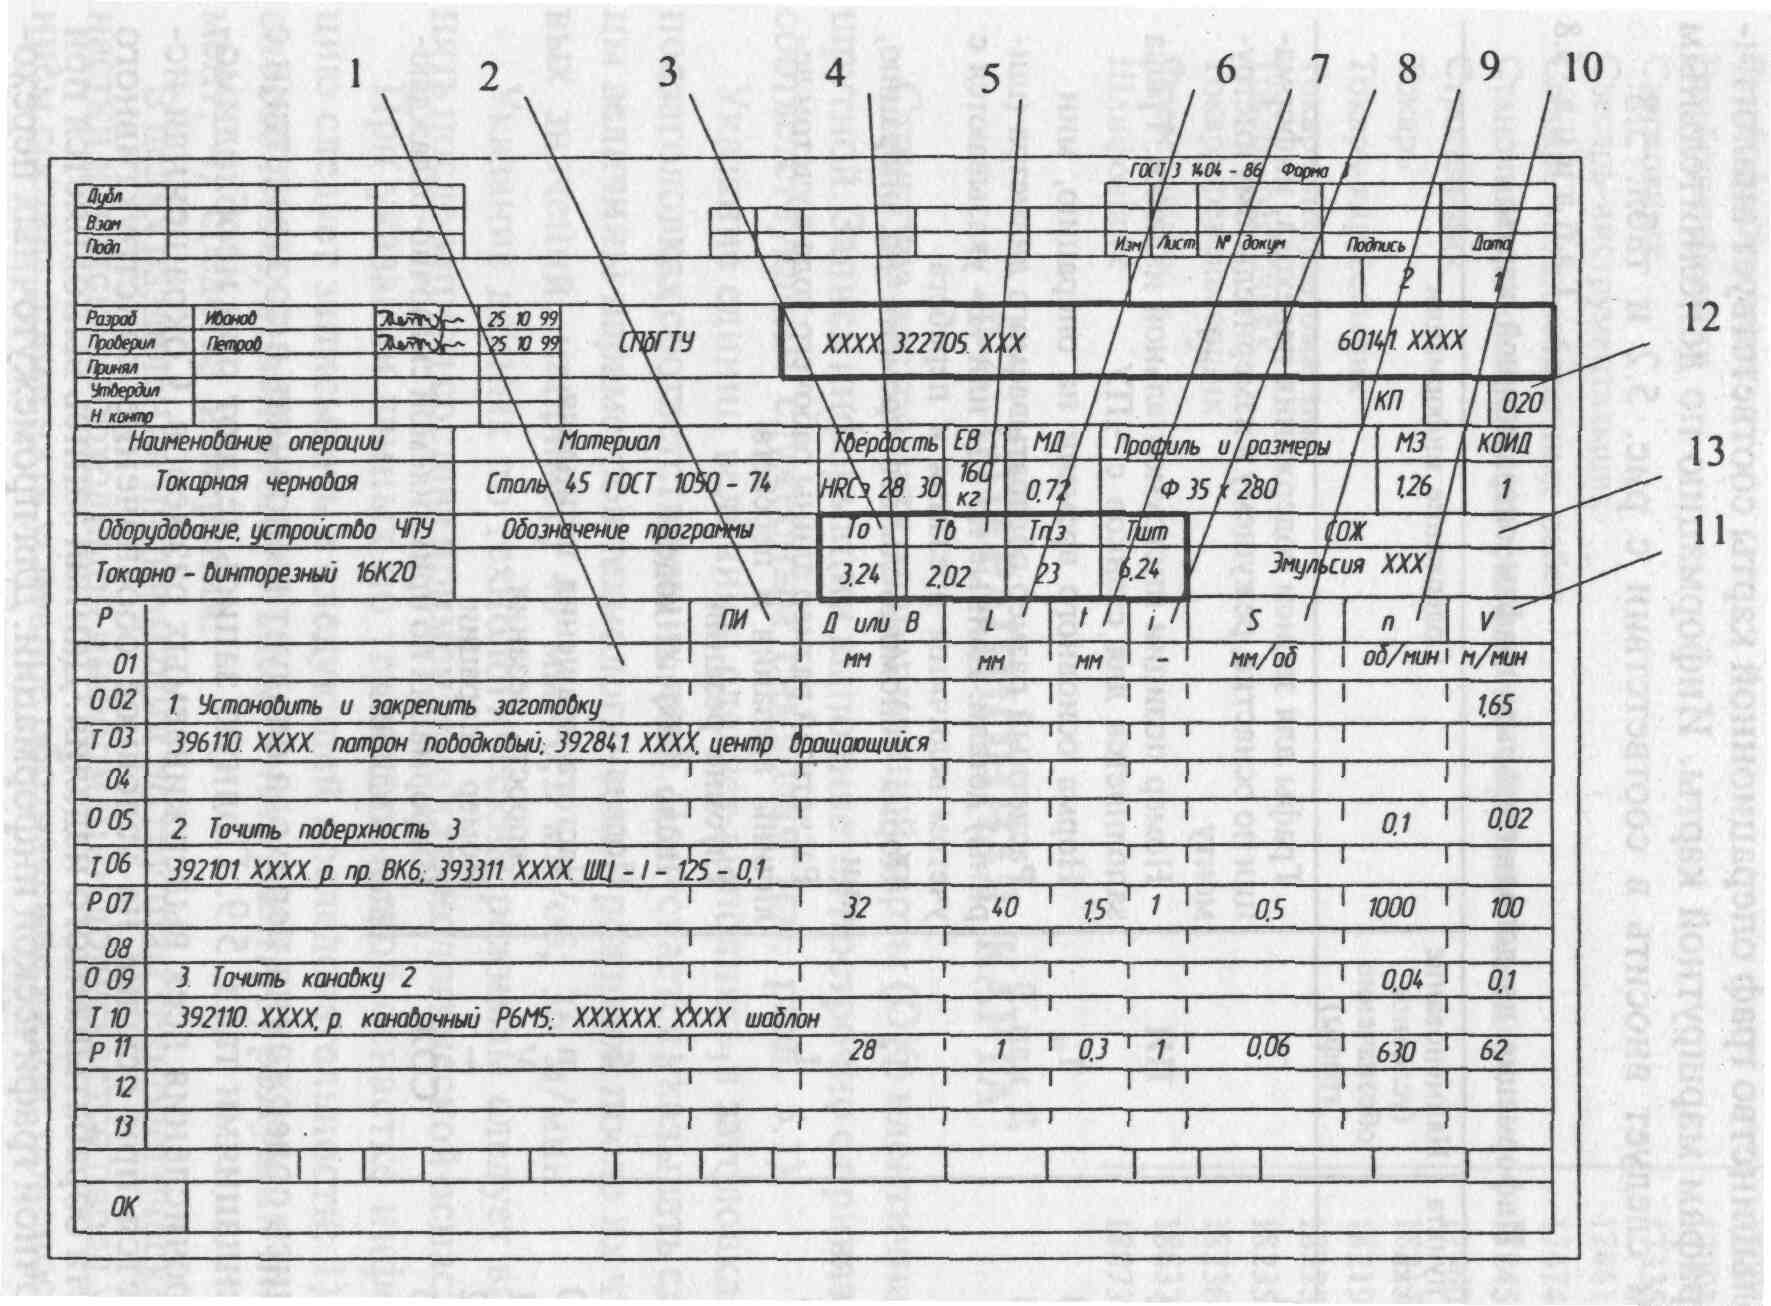 1 2 3 4 5 6 7 8 9 10
ГОСТ 3 1404 - 86 Форма 3
Дубл
Взам
Подп
Изм Лист № докум Подпись Дата
2 1
Разраб Иванов 25 10 99
Проверил Петров 25 10 99
Принял
Утвердил
Н контр
СПбГТУ
XXXX 322705. XXX
60141. XXXX
12
КП 020
Наименование операции Материал Твердость ЕВ МД Профиль и размеры МЗ КОИД
Токарная черновая Сталь 45 ГОСТ 1050 - 74 HRCэ 28. 30 160 кг 0,72 Ф 35 х 280 1,26 1
13
Оборудование, устройство ЧПУ Обозначение программы То Тв Тп.з Тшт СОЖ
11
Токарно - винторезный 16К20 3,24 2,02 23 6,24 Эмульсия XXX
Р ПИ Д или В L t i S n V
01 мм мм мм - мм/об об/мин м/мин
О 02 1. Установить и закрепить заготовку 1,65
Т 03 396110. XXXX. патрон поводковый; 392841. XXXX, центр вращающийся
04
О 05 2. Точить поверхность 3 0,1 0,02
Т 06 392101. XXXX. р. пр. ВК6; 393311. XXXX. ШЦ - I - 125 - 0,1
Р 07 32 40 1,5 1 0,5 1000 100
08
О 09 3. Точить канавку 2 0,04 0,1
Т 10 392110. XXXX, р. канавочный Р6М5; XXXXXX. XXXX шаблон
Р 11 28 1 0,3 1 0,06 630 62
12
13
ОК